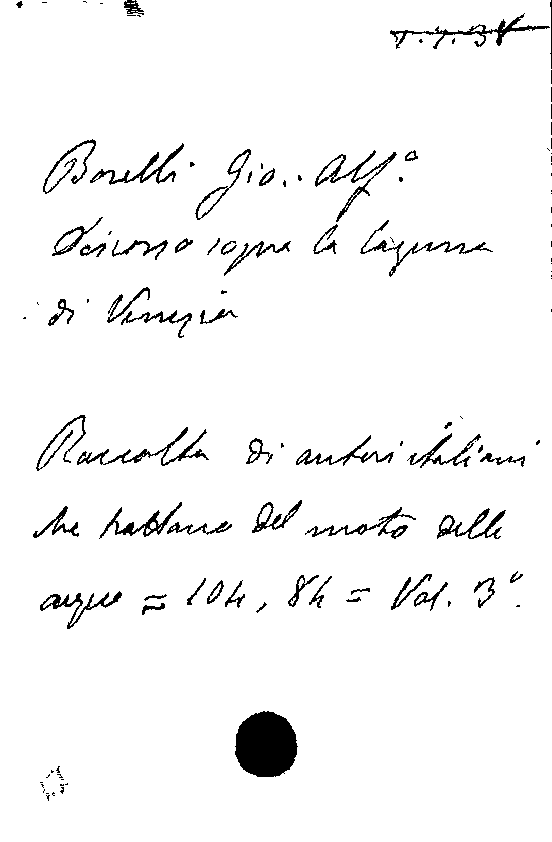 Borelli Gio. Alf.º
Discorso sopra la laguna
di Venezia
Raccolta di autori italiani
che trattano del moto delle
acque = 104, 84 = Vol. 3º.